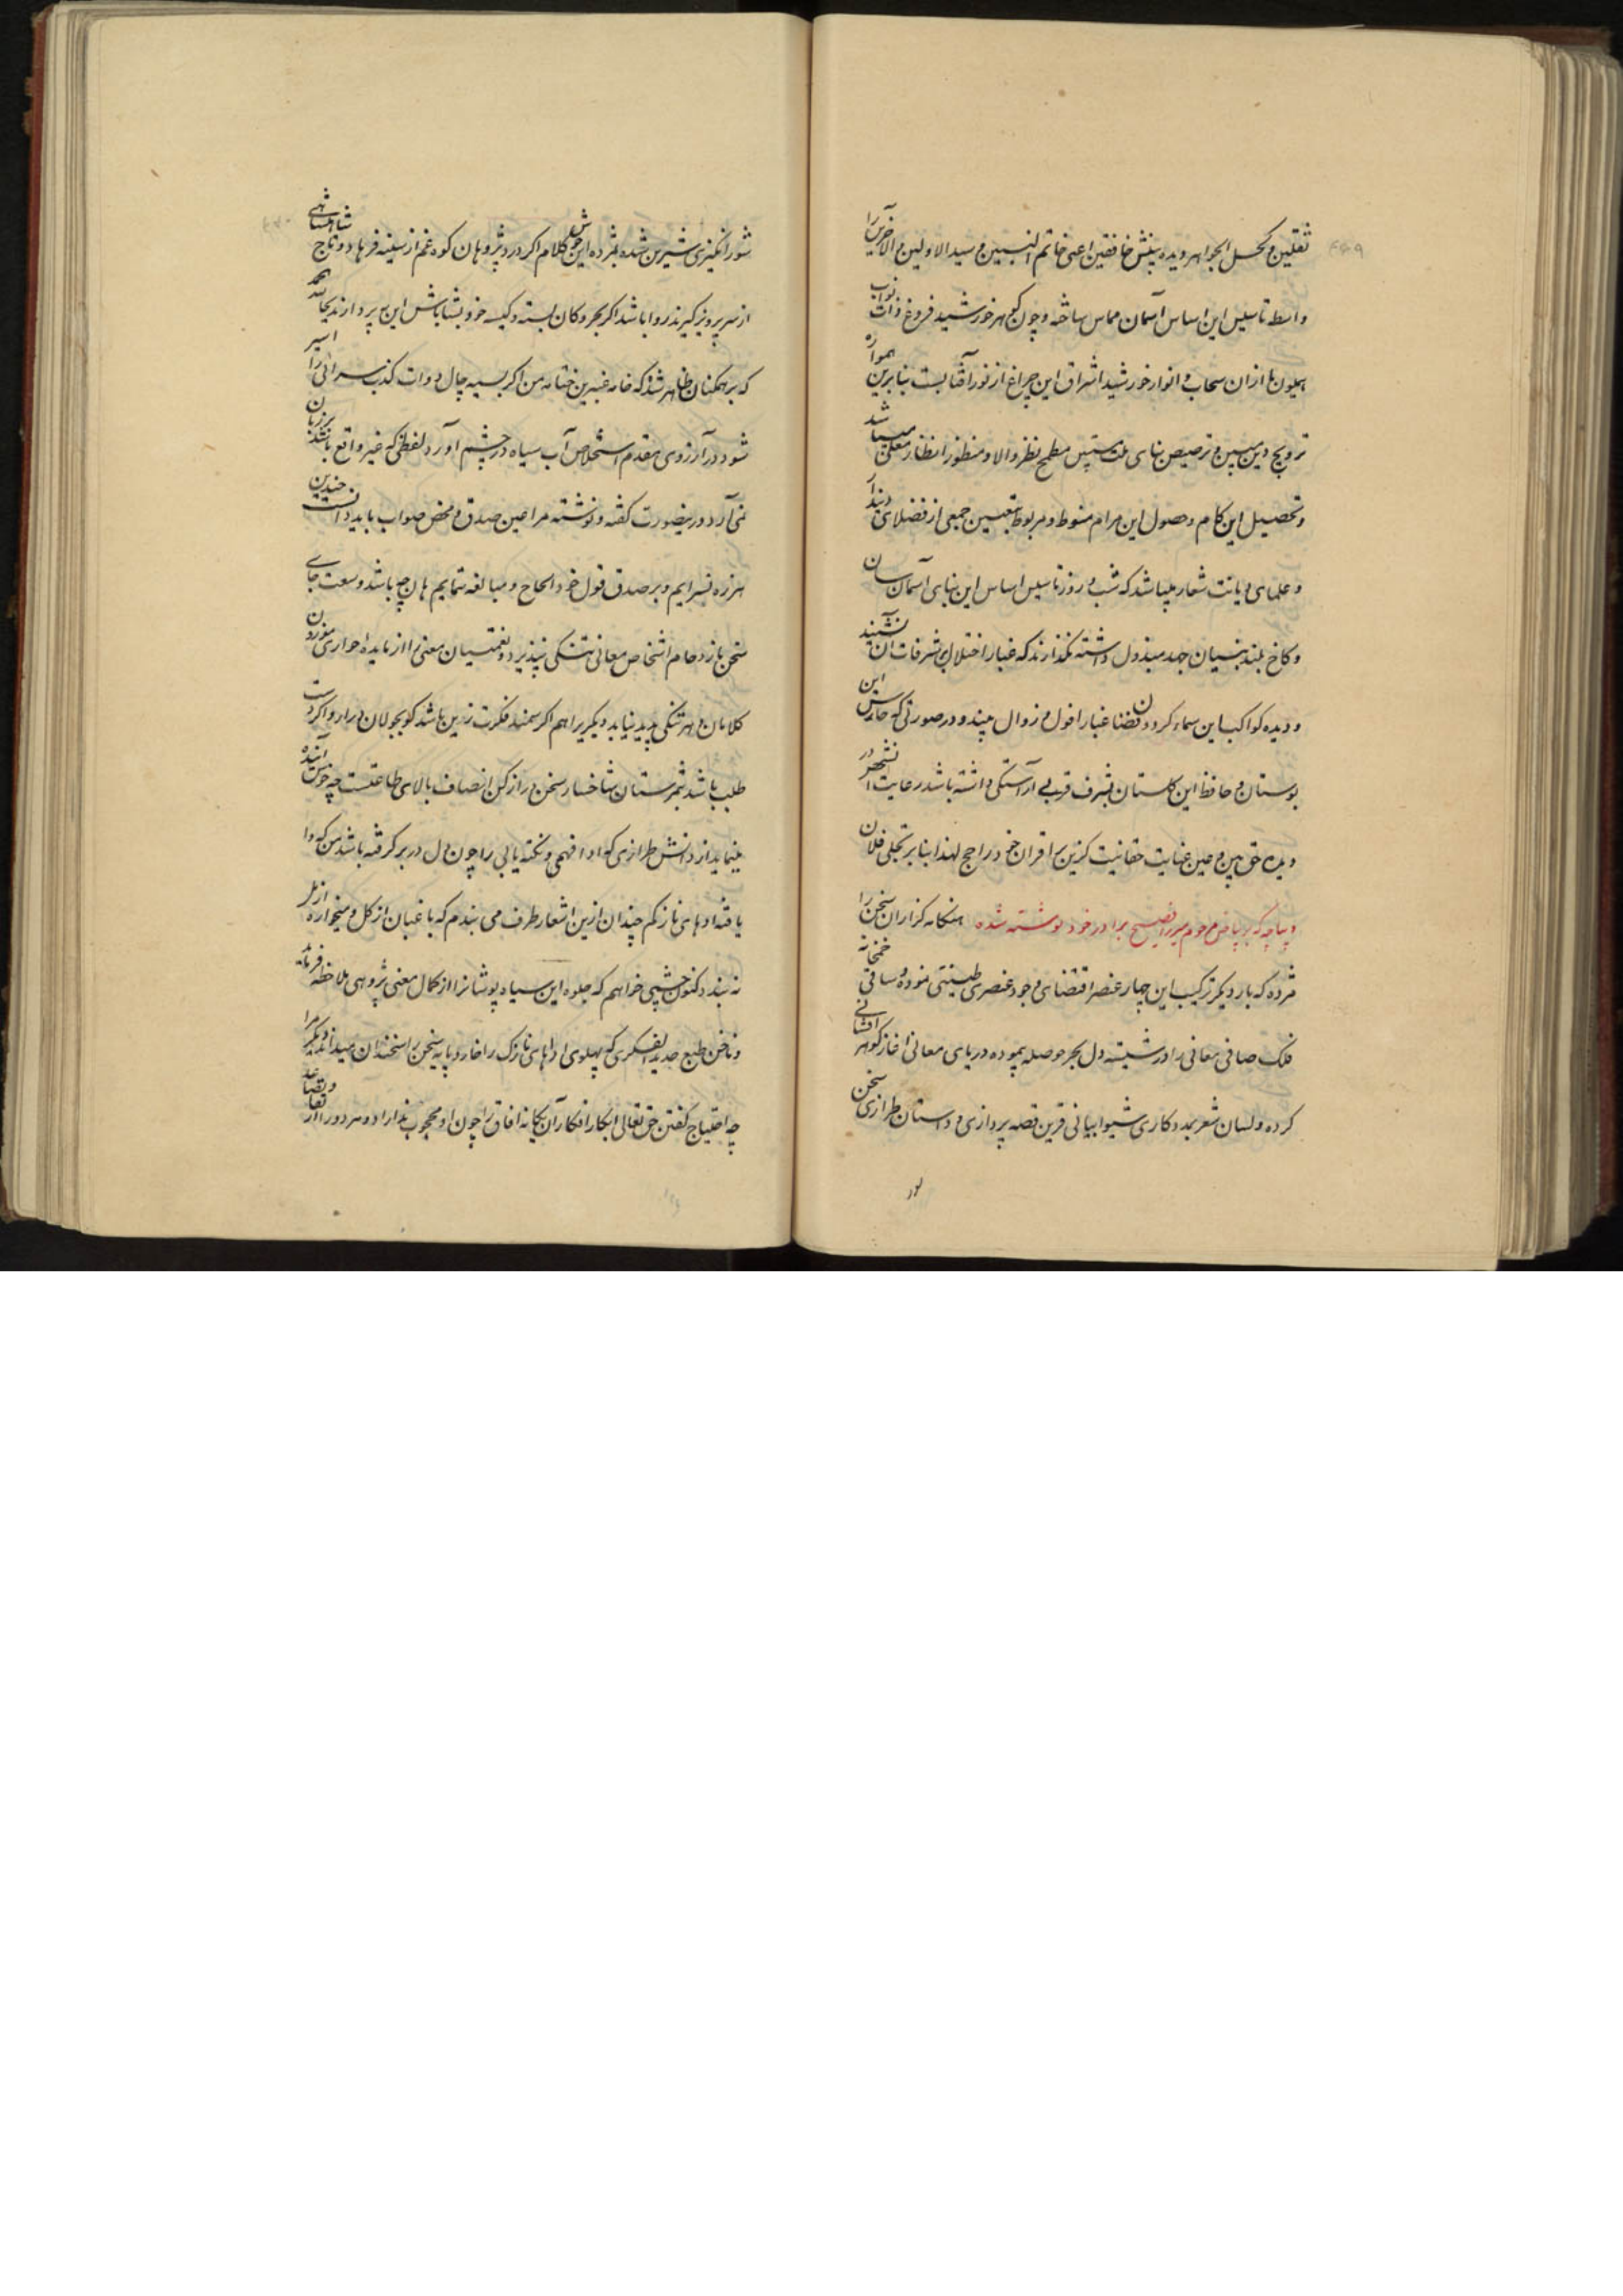 ثقلین و کحل الجواهر دیده بینش خافقین اعنی خاتم النبیین و سید الاولین و الاخرین را
واسطه تاسیس این اساس آسمان مماس ساخته و چون گوهر خورشید فروغ ذات نواب
همیون ما از ان سحاب و انوار خورشید اشراق این چراغ از نور آفتابست بنابرین همواره
ترویج دین مبین و ترصیص بنای ملت مطمح نظر والا و منظور انظار معلی میباشد
و تحصیل این کام و حصول این مرام منوط و مربوط بتعیین جمعی از فضلای دیندار
و علمای دیانت شعار میباشد که شب و روز تاسیس اساس این بنای آسمان سان
و کاخ بلند بنیان جهد مبذول داشته نگذارند که غبار اختلال بر شرفات آن نشیند
و دیده کواکب این سماء گردون فضا غبار افول و زوال بیند و در صورتی که حارس این
بوستان و حافظ این گلستان بشرف قرب آراستگی داشته باشد رعایت در
دیده حق بین و عین عنایت حقانیت گزین بر اقران خود راجح لهذا بنابر تجلی فلان
دیباچه که بر بیاض مرحوم میرزا فصیح برادر خود نوشته شده هنگامه گزاران سخن را
مژده که بار دیگر ترکیب این چهار عنصر اقتضای وجود عنصری طینتی نموده و ساقی خمخانه
فلک صافی معانی را در شیشه دل بحر حوصله پیموده دریای معانی اغاز گوهر افشانی
کرده و لسان شعر بمددکاری شیوا بیانی قرین قصه پردازی و داستان طرازی سخن
شور انگیزی شیرین شده مژده این کلام اگر درد پژوهان کوه غم از سینه فرهاد و تاج شاهنشاهی
از سر پرویز گیرند روا باشد اگر بحر و کان بسته و کیسه خود بشاباش این پردازند بجا
که بر همگنان ظاهر شد که خامه عنبرین ختامه من اگر بسیه چال دوات کذب سرائی را اسیر
شود در آرزوی مقدم استخلاص آب سیاه در چشم آورد لفظی که غیر واقع باشد بزبان
نمی آرد درینصورت گفته و نوشته مرا عین صدق و محض صواب باید دانست چندین
هرزه نسرایم و بر صدق قول خود الحاح و مبالغه ننمایم هان چه باشد وسعت جای
سخن بازدحام اشخاص معانی تنگی نپذیرد و نعمتیان معنی را از مایده حواری
کلامان و هر تنگی پدید نیاید دیگر را هم اگر سمند فکرت زین باشد گو بجولان درار و اگر
طلب باشد ثمرستان شاخسار سخن دراز کن انصاف بالای طاعتست چه خوش آینده
مینماید از دانش طرازی که ادا فهمی و نکته یابی را چون دل در بر گرفته باشد من که
یافته ادهای نازکم چندان ازین اشعار طرف می بندم که باغبان از گل و میخواره از مل
نه بندد کنون چشمی خواهم که جلوه این سیاه پوشانرا از کمال معنی پژوهی ملاحظه فرماید
و ناخن طبع حدید الفکری که پهلوی اداهای نازک را خارد پایه سخن را سخندان میداند
چه احتیاج گفتن حق تعالی ابکار افکار آن یگانه افاق را چون او محجوب نداراد و هر دو را از
نور